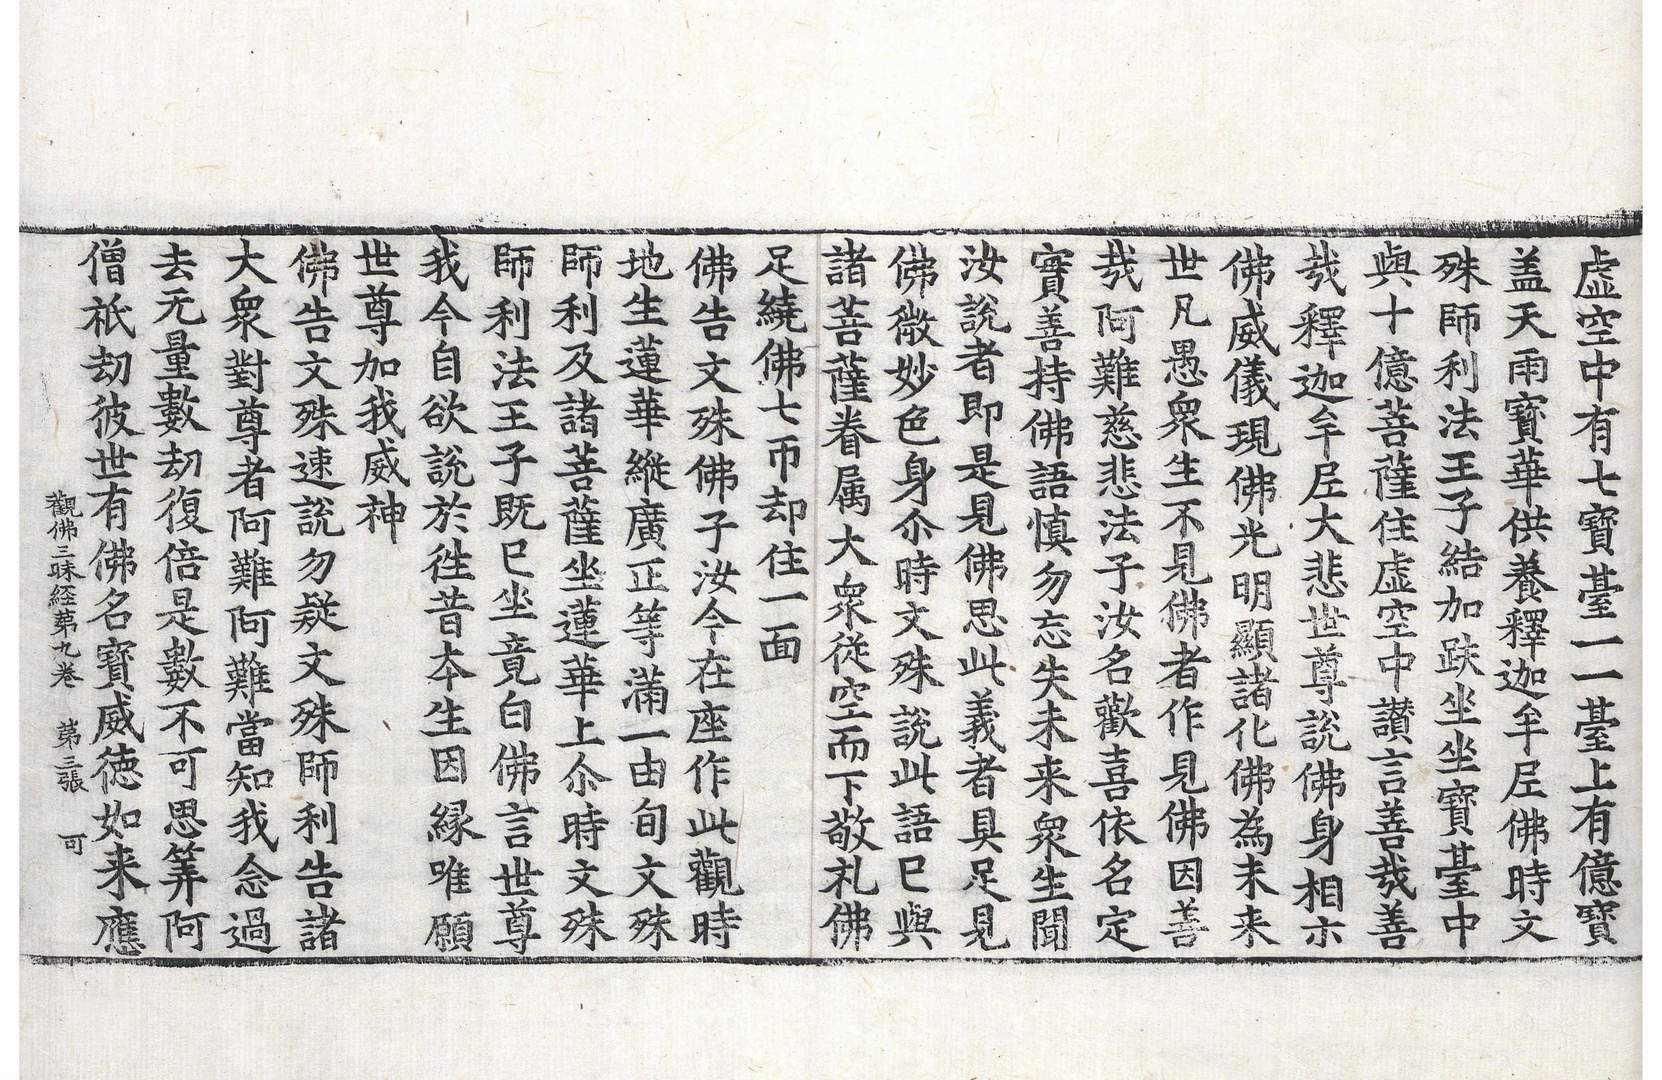 虛空中有七寶臺一一臺上有億寶
盖天雨寶華供養釋迦牟尼佛時文
殊師利法王子結加趺坐坐寶臺中
與十億菩薩住虛空中讃言善哉善
哉釋迦牟尼大悲世尊說佛身相示
佛威儀現佛光明顯諸化佛為未来
世凡愚衆生不見佛者作見佛因善
哉阿難慈悲法子汝名歡喜依名定
實善持佛語慎勿忘失未来衆生聞
汝說者即是見佛思此義者具足見
佛微妙色身尒時文殊說此語已與
諸菩薩眷属大衆従空而下敬礼佛
足繞佛七帀却住一面
佛告文殊佛子汝今在座作此觀時
地生蓮華縱廣正等滿一由旬文殊
師利及諸菩薩坐蓮華上尒時文殊
師利法王子既已坐竟白佛言世尊
我今自欲說於徃昔本生因縁唯願
世尊加我威神
佛告文殊速說勿疑文殊師利告諸
大衆對尊者阿難阿難當知我念過
去无量數劫復倍是數不可思筭阿
僧祇劫彼世有佛名寶威徳如来應
觀佛三昧経苐九卷 苐三張 可